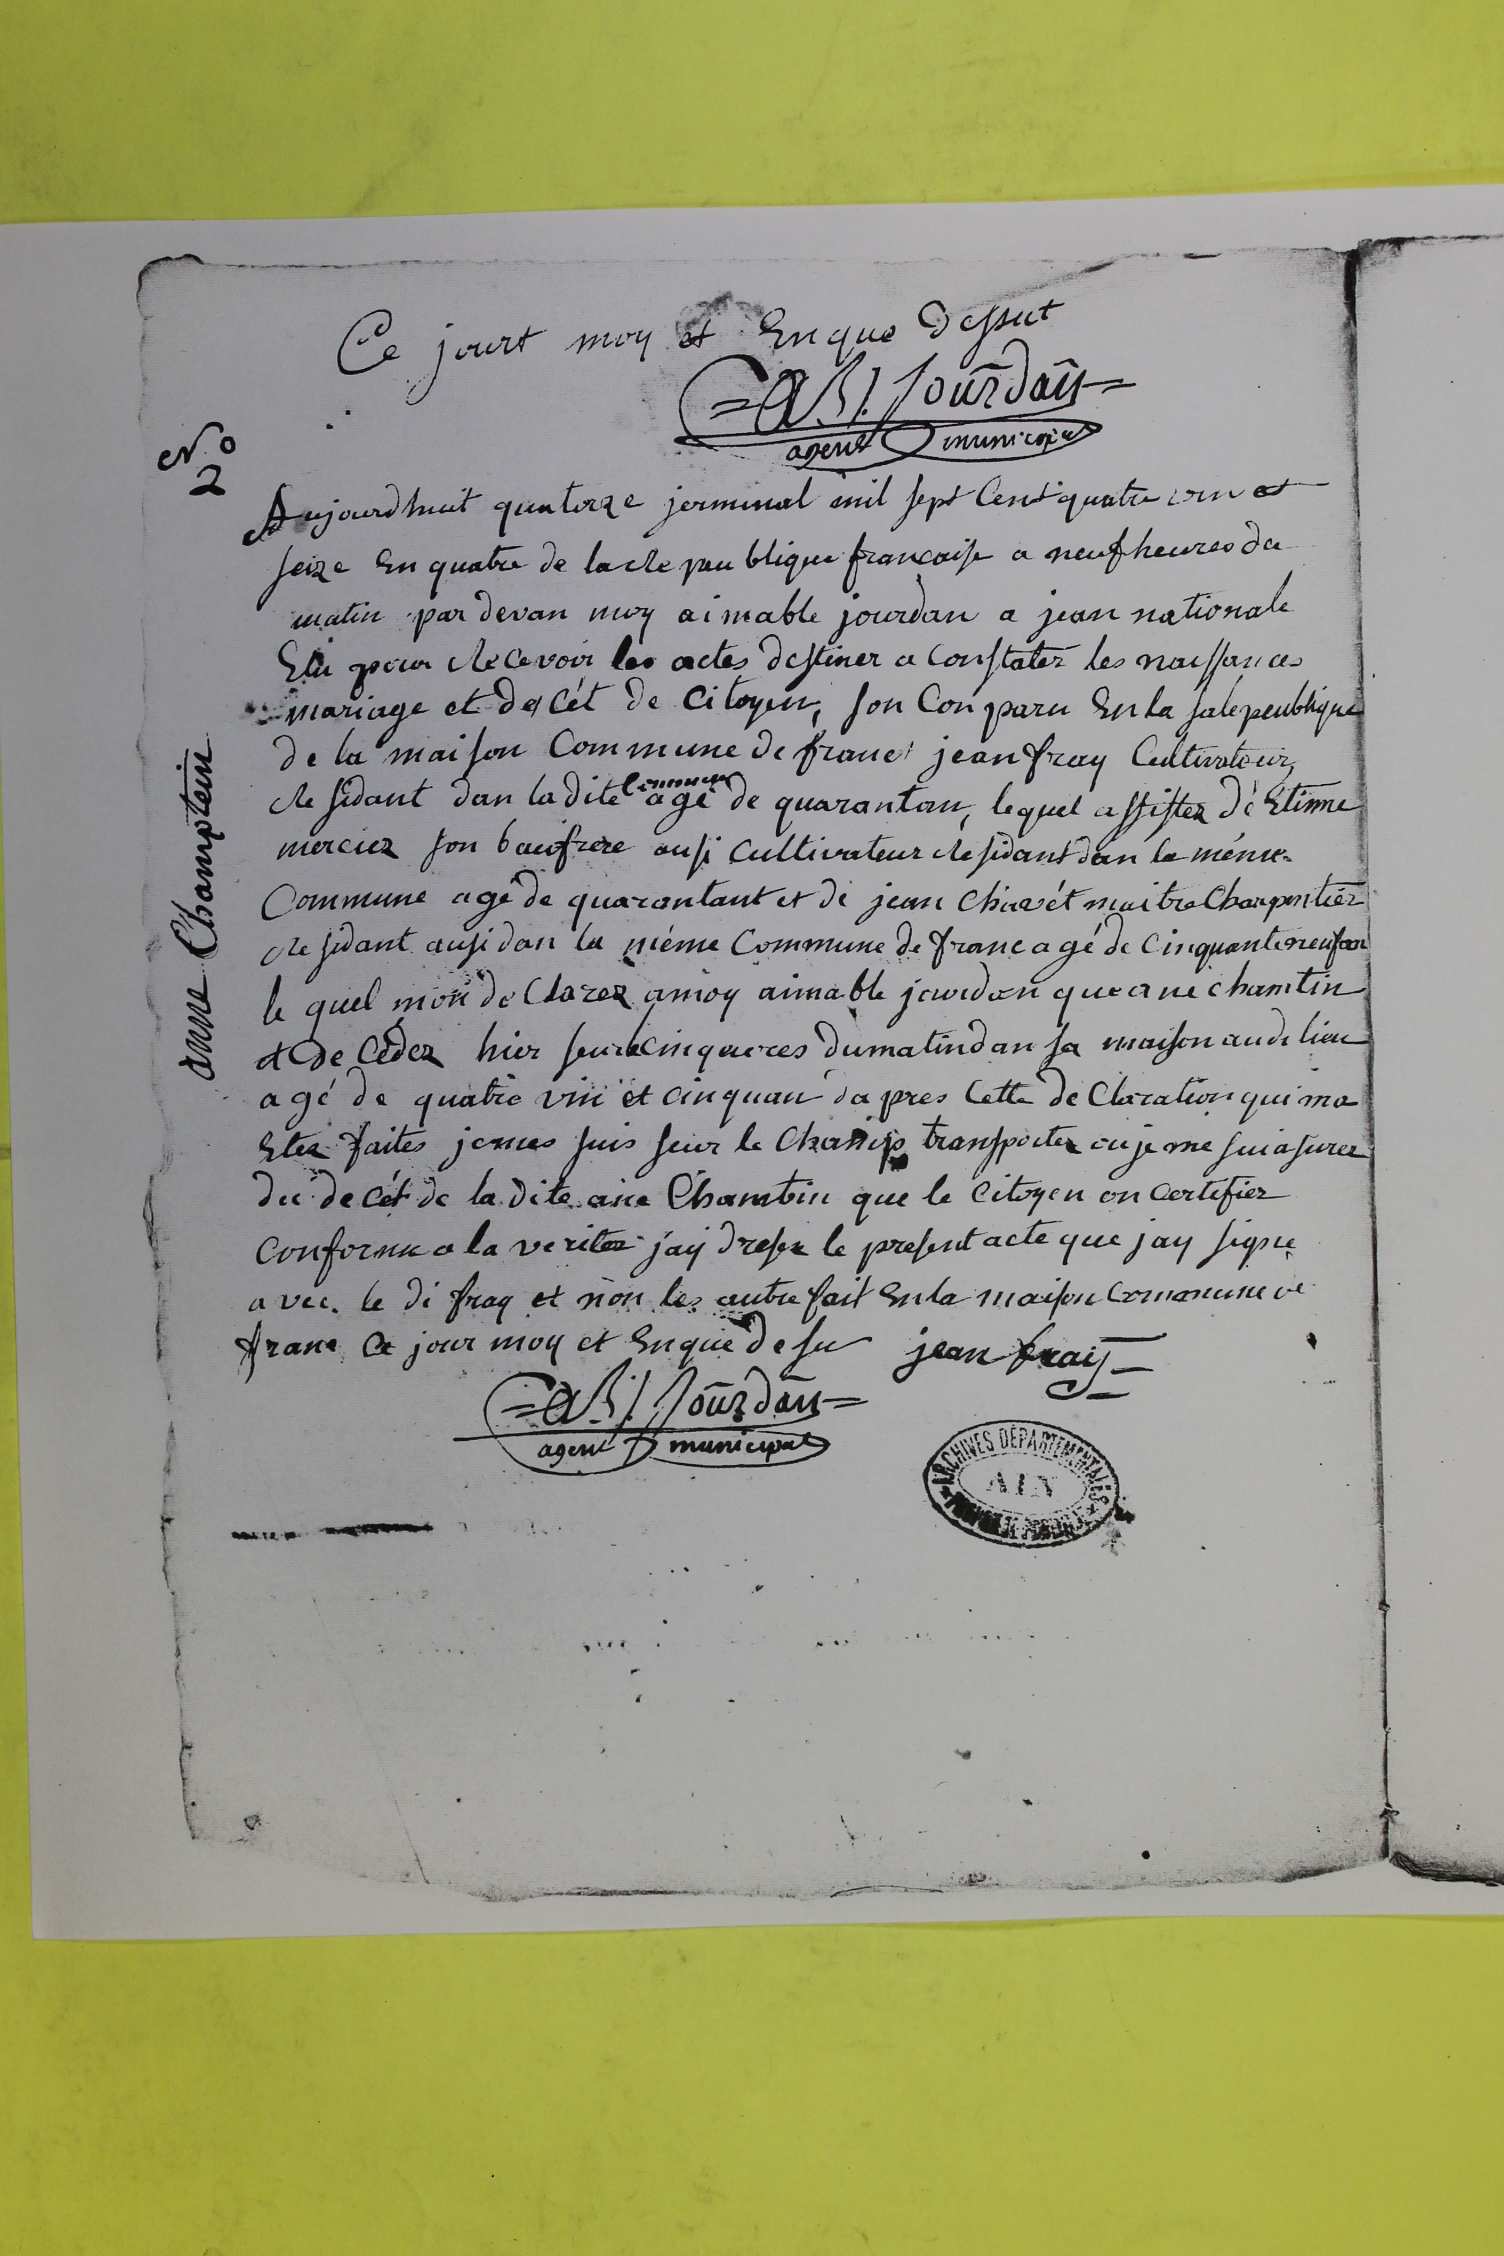 Ce jourt moy et Enque dessut
=A. B. Jourdan=
agent municipal
No
2
anne Champtein
Aujourdhuit quatorze jerminal mil sept Cent quatre vin et
seize En quatre de la Re peublique francaise a neuf heures du
matin par devan moy aimable jourdan a jean nationale
Elu pour Recevoir les actes destiner a Constater les naissances
mariage et de Cét de Citoyen, son Conparu En la sale peublique
de la maison Commune de franc jean fray Cultivateur,
Residant dan la dite Commune agé de quarantan, lequel assister dé Etinne
mercier son baufrere ausi Cultivateur Residant dan la méme
Commune agé de quarantant et de jean Chavét maitre Charpentier
Residant ausi dan la méme Commune de franc agé de Cinquante neuf an
le quel mon de Clarer a moy aimable jourdan que ane chamtin
et de Céder hier seur Cinq eures du matin dan sa maison audi lieu
agé de quatre vin et cinquan da pres Cette de Claration qui ma
Eter faites je mes suis seur le Champ transporter ou je me sui asurer
du de cét de la dite ane Chamtin que le Citoyen on Certifier
Conforme a la veriter jay dreser le present acte que jay signe
avec le di fray et non les autre fait En la maison Commune de
franc Ce jour moy et Enque de su jean fraij
=A. B. Jourdan=
agent municipal
ARCHIVES DÉPARTEMENTALES
AIN